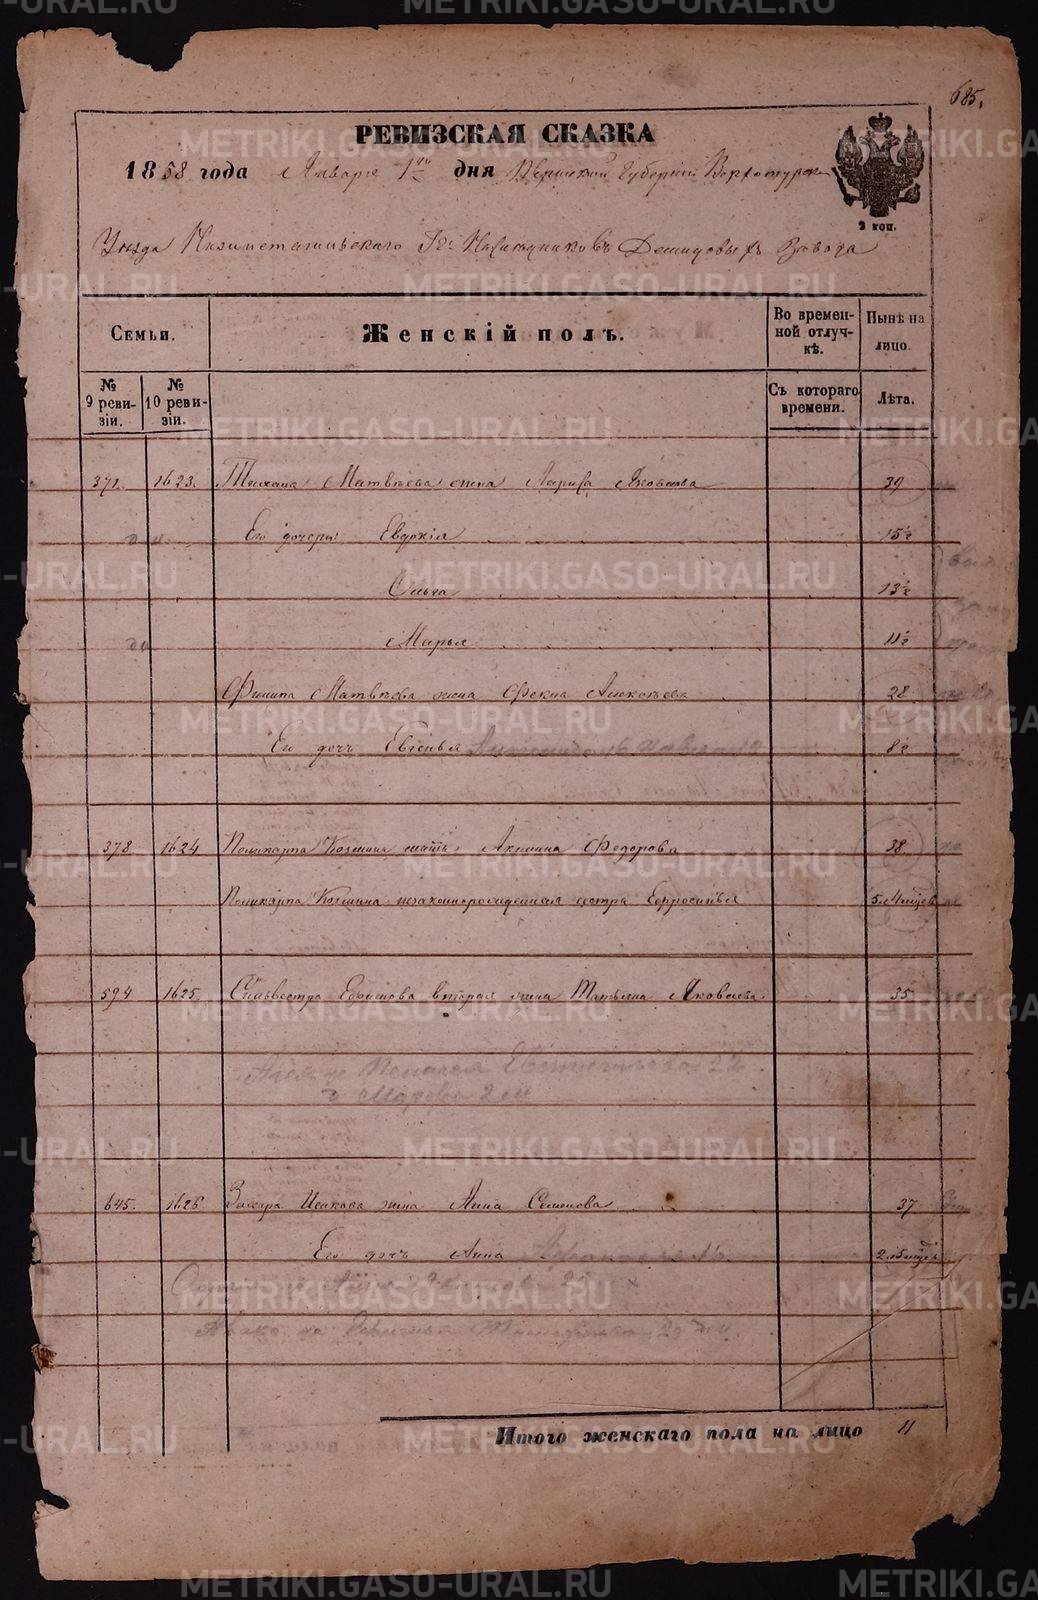 685.
РЕВИЗСКАЯ СКАЗКА
1858 года Января 1го дня Пермской Губерніи Верхотурска
Уѣзда Нижнетагильскаго Гг. Наслѣдниковъ Демидовыхъ Завода
2 коп.
Семьи.
Женскій полъ.
Во времен-
ной отлуч-
кѣ.
Нынѣ на
лицо.
№
9 реви-
зіи.
№
10 реви-
зіи.
Съ котораго
времени.
Лѣта.
371. 1623. Матвѣева жена Лариса Яковлева 39
Его дочери: Евдокія 15½
Ольга 13½
Марья 11½
Филипа Матвѣева жена Фекла Алексѣева 28
Его дочь Евгенья 8½
378 1624 Поликарпа Козмина мать Акилина Федорова 38
Поликарпа Козмина незаконнорожденная сестра Ефросинья 5 Мцѣв
594 1625. Сильвестра Ефимова вторая жена Татьяна Яковлева 35
22
2 м
645. 1626 Захара Исакова жена Анна Семенова 37
Его дочь Анна
Итого женскаго пола на лицо 11
METRIKI.GASO-URAL.RU